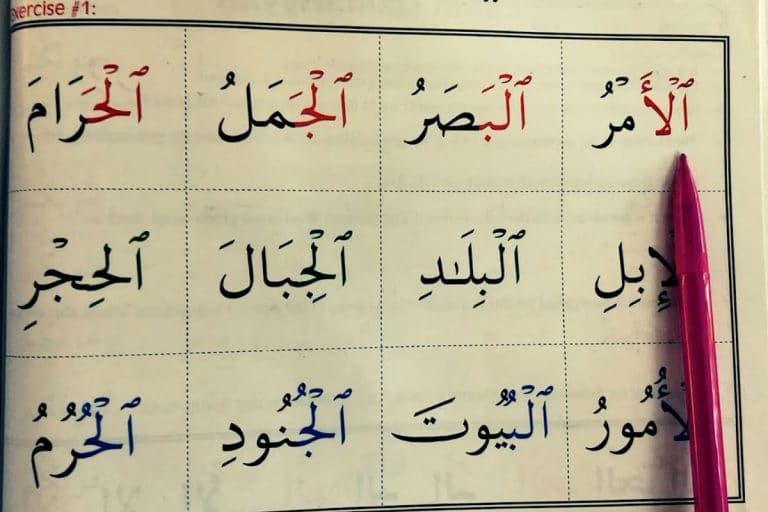 Exercise #1:
ٱلْأَمْرُ ٱلْبَصَرُ ٱلْجَمَلُ ٱلْحَرَامَ
ٱلْإِبِلِ ٱلْبِلَـٰدِ ٱلْجِبَالَ ٱلْحِجْرِ
ٱلْأُمُورُ ٱلْبُيُوتَ ٱلْجُنُودِ ٱلْحُرُمُ